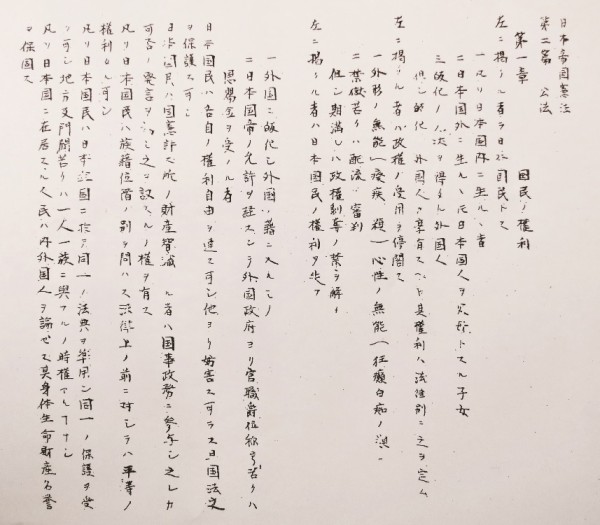 日本帝国憲法
第二篇 公法
第一章 国民ノ権利
左ニ掲クル者ヲ日本国民トス
一凡ソ日本国内ニ生ルヽ者
二日本国外ニ生ルヽトモ日本国人ヲ父母トスル子女
三帰化ノ免状ヲ得タル外国人
但シ帰化 外国人ノ享有スヘキ其権利ハ法律別ニ之ヲ定ム
左ニ掲クル者ハ政権ノ受用ヲ停閣ス
一外形ノ無能（癈疾ノ類）心性ノ無能（狂癲白痴ノ類）
二禁獄若クハ配流ノ審判
但シ期満レハ政権剥奪ノ禁ヲ解ク
左ニ掲クル者ハ日本国民ノ権利ヲ失フ
一外国ニ帰化シ外国ノ籍ニ入ルモノ
二日本国帝ノ允許ヲ経スシテ外国政府ヨリ官職爵位称号若クハ
恩賜金ヲ受クル者
日本国民ハ各自ノ権利自由ヲ達ス可シ他ヨリ妨害ス可ラス且国法之
ヲ保護ス可シ
日本国民ハ国憲許ス所ノ財産智識 ル者ハ国事政務ニ参与シ之レカ
可否ノ発言ヲ シ之ヲ議スルノ権ヲ有ス
凡ソ日本国民ハ族籍位階ノ別ヲ問ハス法律上ノ前ニ対シテハ平等ノ
権利タル可シ
凡ソ日本国民ハ日本全国ニ於テ同一ノ法典ヲ準用シ同一ノ保護ヲ受
ク可シ地方及門閥若クハ一人一族ニ与フルノ特権アルコトナシ
凡ソ日本国ニ在居スル人民ハ内外国人ヲ論セス其身体生命財産名誉
ヲ保固ス